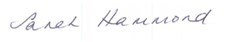 Sarah Hammond